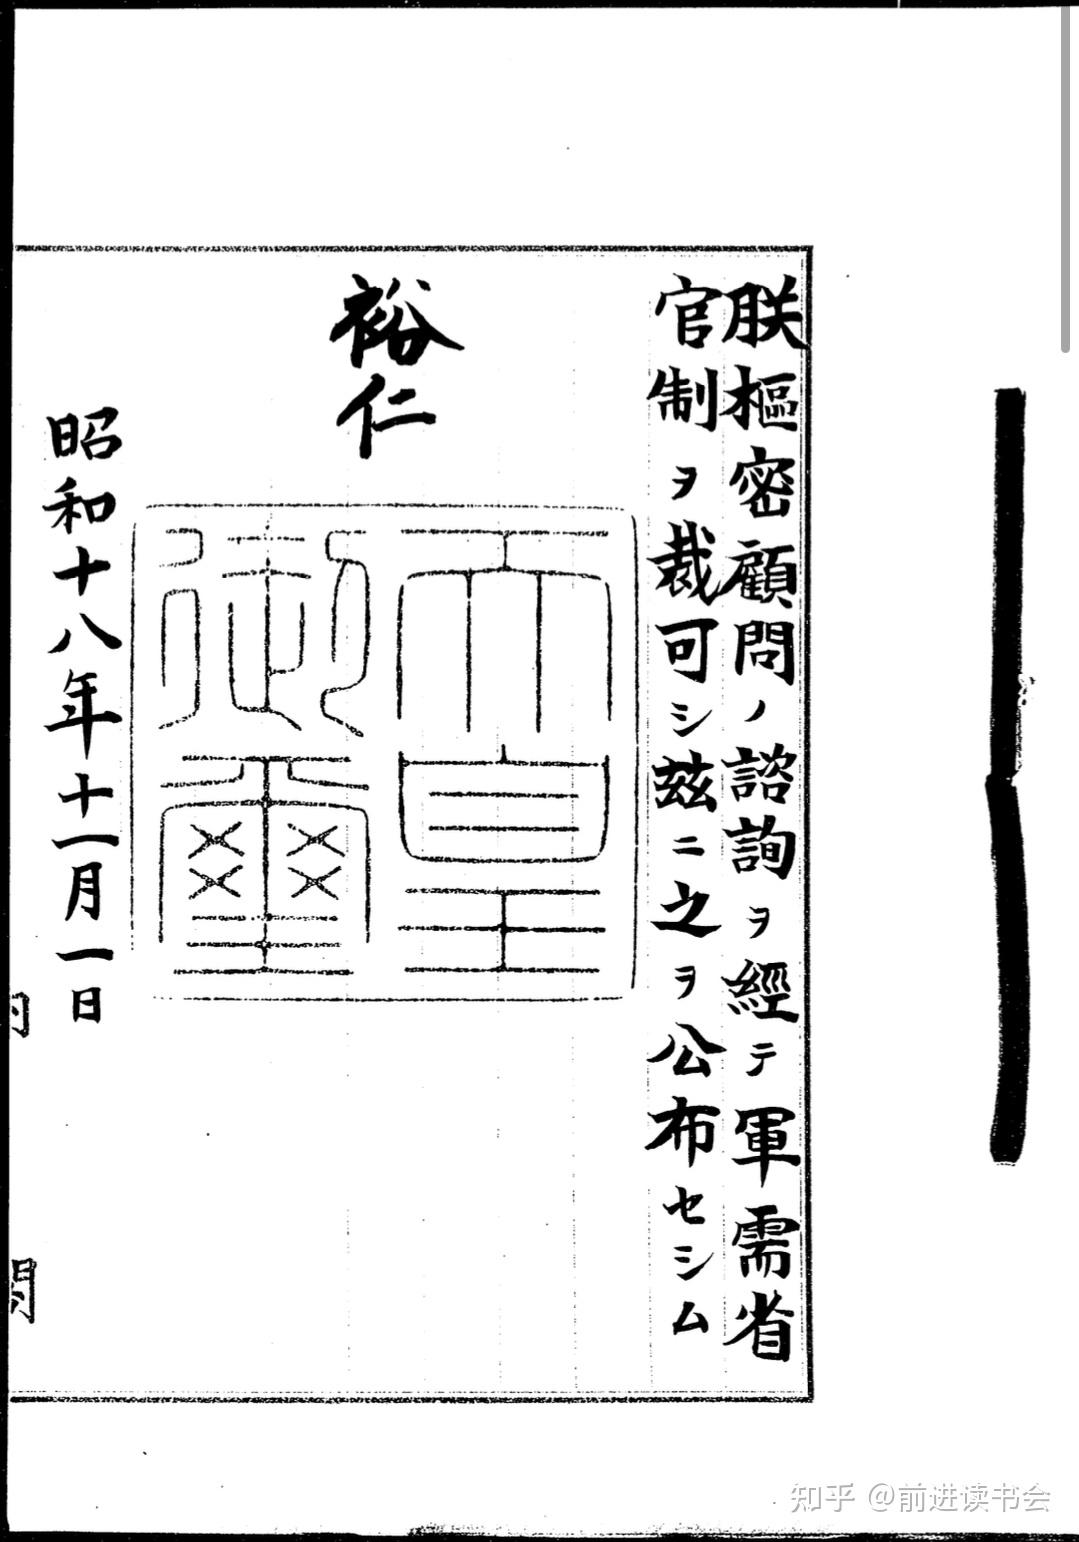 朕樞密顧問ノ諮詢ヲ經テ軍需省
官制ヲ裁可シ玆ニ之ヲ公布セシム
裕仁
天皇
御璽
昭和十八年十一月一日
知乎 @前进读书会